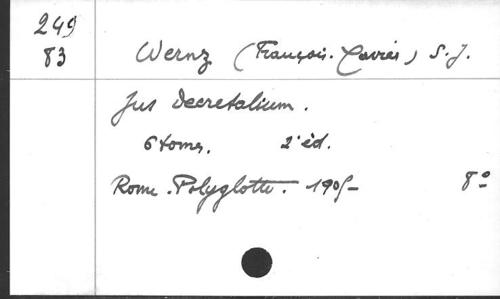 249
83
Wernz (François-Xavier) S.J.
Jus Decretalium.
6 tomes. 2e éd.
Rome. Polyglotte. 1905- 8°